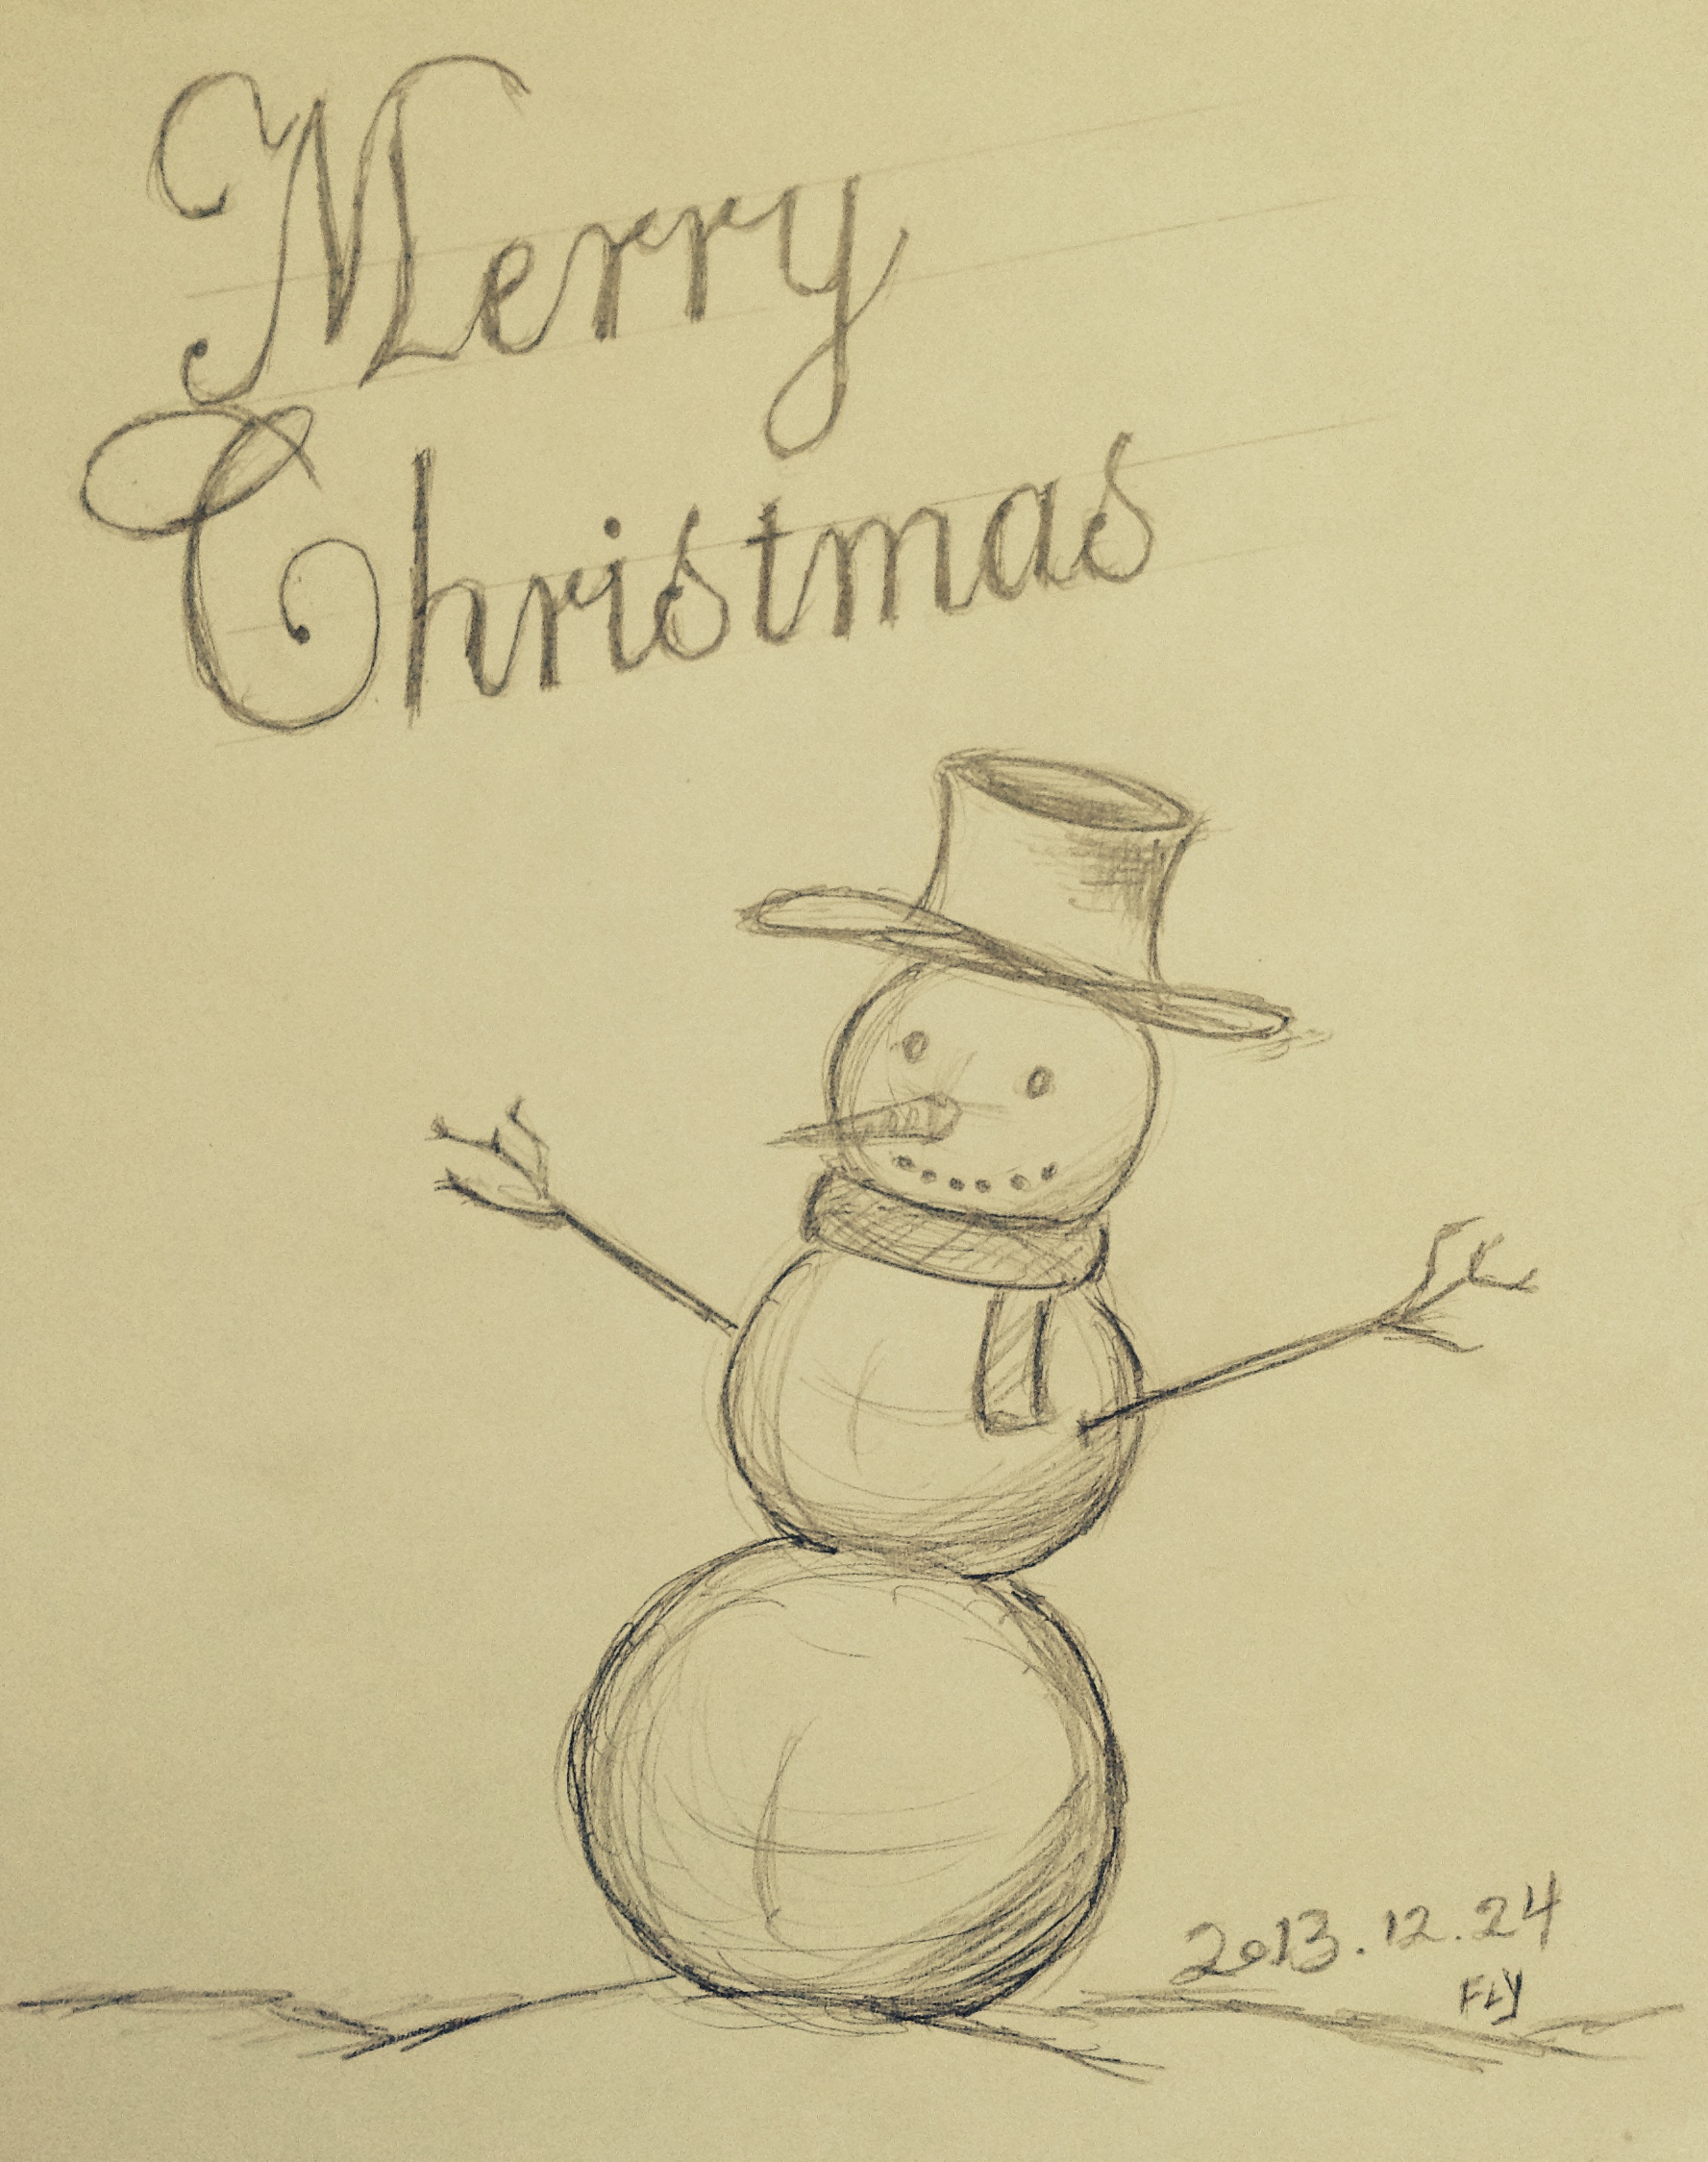 Merry
Christmas
2013.12.24
FLY